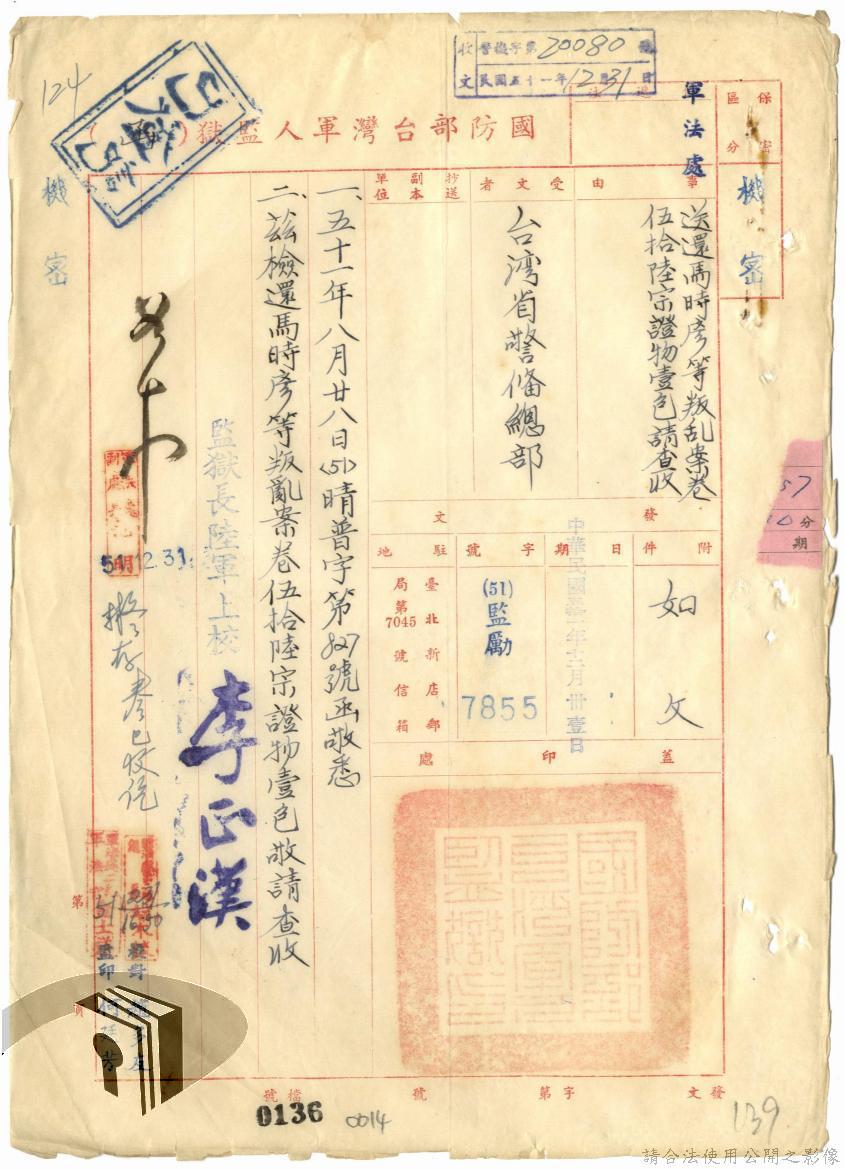 收文 警檢字第20080號
民國五十一年12月31日
124
國防部台灣軍人監獄( )
軍法處
保密區分
機密
機密
事由
送還馬時彥等叛乱案卷
伍拾陸宗證物壹包請查收
受文者
台湾省警俻總部
抄送副本單位
發文
附件
如文
日期
中華民國五十一年十二月卅壹日
字號
(51)監勵
7855
駐地
臺北新店郵局第7045號信箱
蓋印處
國防部台灣軍人監獄印
一、五十一年八月廿八日(51)晴普字第827號函敬悉
二、茲檢還馬時彥等叛亂案卷伍拾陸宗證物壹包敬請查收
監獄長陸軍上校
李正漢
51.12.31.
擬存卷已收訖
校對
監印
第
頁
57
10
分
期
發文
字第
號
檔號
0136
0014
139
請合法使用公開之影像